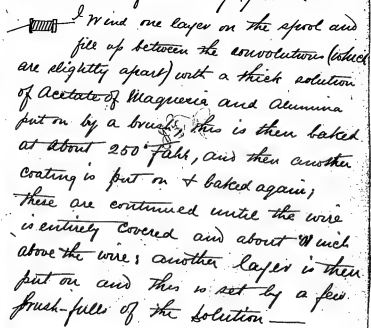 I Wind one layer on the spool and
fill up between the convolutions (which
are slightly apart) with a thick solution
of Acetate of Magnesia and Alumina
put on by a brush, this is then baked
at about 250° Fahr, and then another
coating is put on & baked again;
these are continued until the wire
is entirely covered and about inch
above the wire; another layer is then
put on and this is set by a few
brush-fulls of the solution —